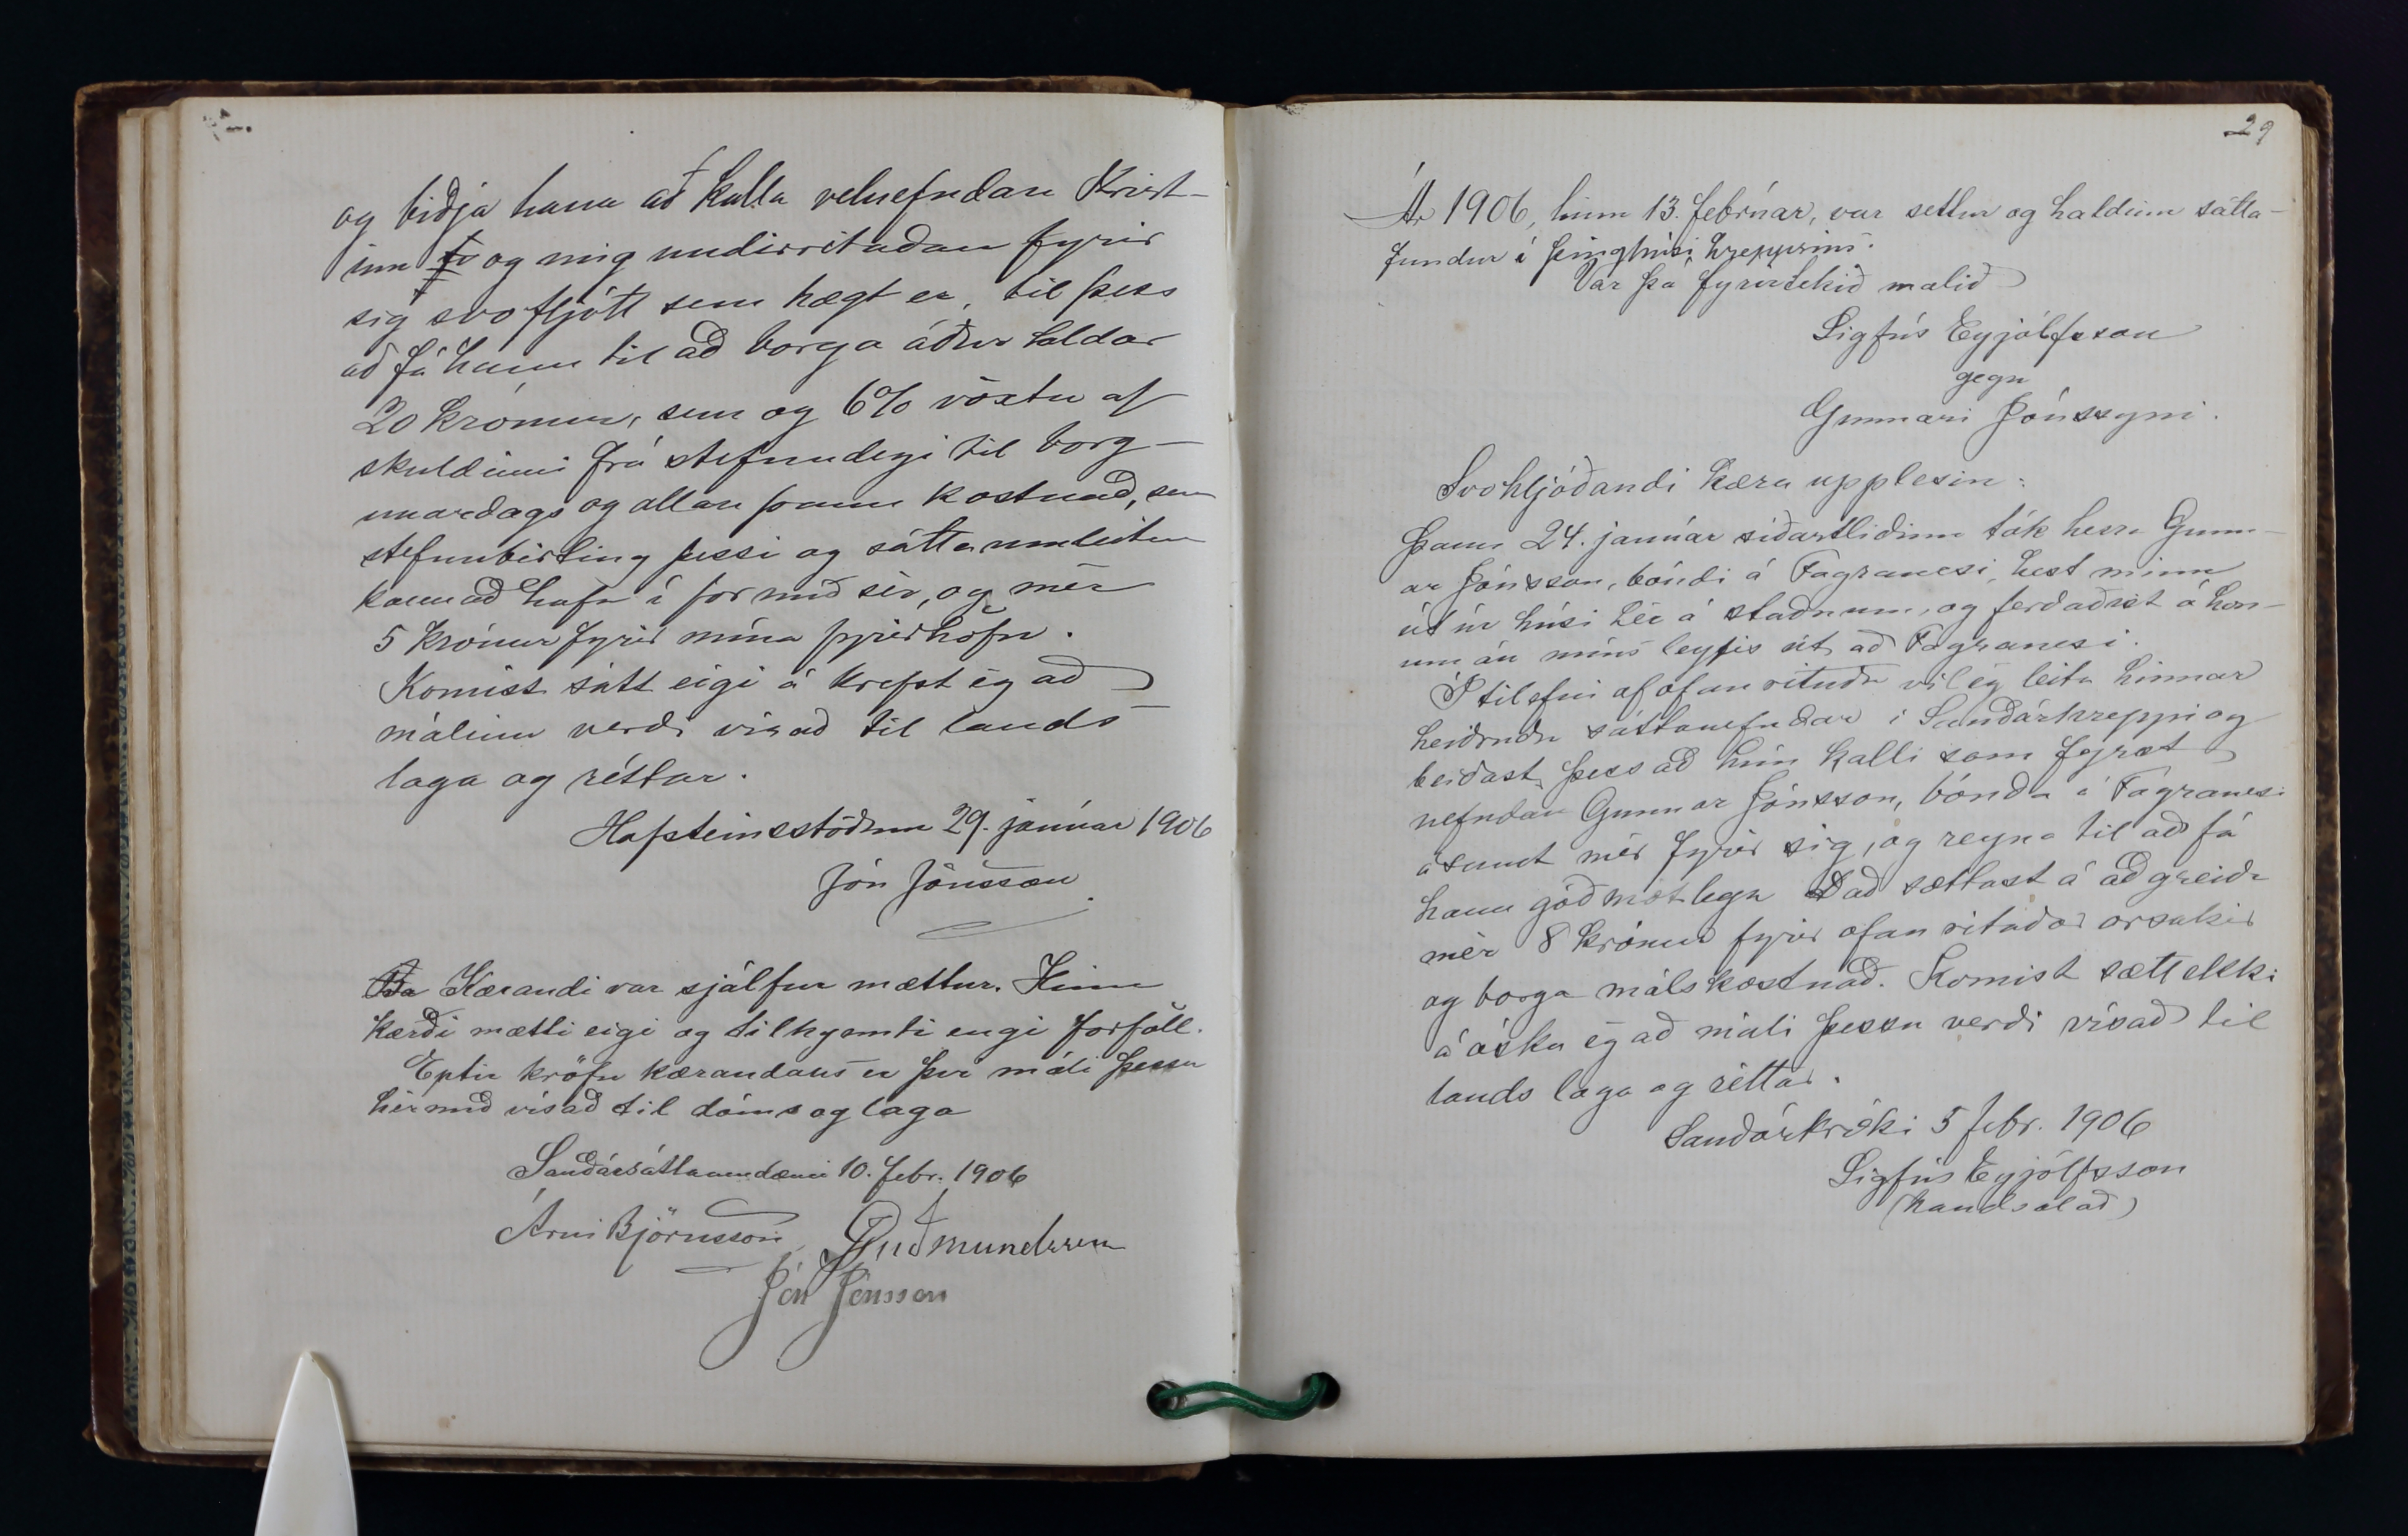 og biðja hana að kalla velnefndan Krist-
inn og mig undirritaðan fyrir
sig svo fljótt sem hægt er, til þess
að fá hann til að borga áður taldar
20 krónur, sem og 6% vöxtu af
skuldinni frá stefnudegi til borg-
unardags og allan þann kostnað, sem
stefnubirting þessi og sáttaumleitun
kann að hafa í för með sér, og mér
5 krónur fyrir mína fyrirhöfn.
Komist sátt eigi á krefst ég að
málinu verði vísað til lands
laga og réttar.
Hafsteinsstöðum 29. janúar 1906
Jón Jónsson
Kærandi var sjálfur mættur. Hinn
kærði mætti eigi og tilkynnti engi forföll.
Eptir kröfu kærandans er því máli þessu
hér með vísað til dóms og laga
Sauðársáttaumdæmi 10. febr. 1906
Árni Björnsson Guðmundsson
Jón Jónsson
29
Ár 1906, hinn 13. febrúar, var settur og haldinn sátta-
fundur í þinghúsi hreppsins.
Var þá fyrirtekið málið
Sigfús Eyjólfsson
gegn
Gunnari Jónssyni.
Svohljóðandi kæra upplesin:
Þann 24. janúar síðastliðinn tók herra Gunn-
ar Jónsson, bóndi á Fagranesi, hest minn
út úr húsi hér á staðnum, og ferðaðist á hon-
um án míns leyfis út að Fagranesi.
Í tilefni af ofanrituðu vil ég leita hinnar
heiðruðu sáttanefndar í Sauðárhreppi og
beiðast þess að hún kalli sem fyrst
nefndan Gunnar Jónsson, bónda á Fagranesi
ásamt mér fyrir sig, og reyna til að fá
hann góðmótlega að sættast á að greiða
mér 8 krónur fyrir ofanritaðar orsakir
og borga málskostnað. Komist sætt ekki
á óska ég að máli þessu verði vísað til
lands laga og réttar.
Sauðárkróki 5 febr. 1906
Sigfús Eyjólfsson
(handsalað)